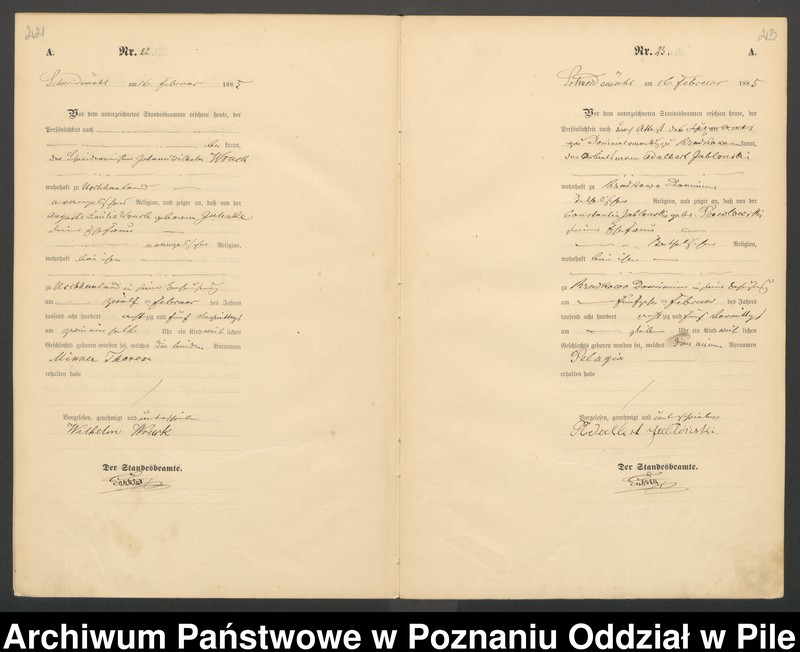 221
A.
Nr. 22
Schneidemühl am 16. Februar 1885
Vor dem unterzeichneten Standesbeamten erschien heute, der
Persönlichkeit nach
be kannt,
der Johann Wilhelm Wruck
wohnhaft zu Uschhauland
evangelischer Religion, und zeigte an, daß von der
Auguste Emilie Wruck geborenen
seiner Ehefrau
evangelischer Religion,
wohnhaft bei ihm
zu Uschhauland in seiner Behausung
am zwölf ten Februar des Jahres
tausend acht hundert acht zig und fünf Nachmittags
um Uhr ein Kind weib lichen
Geschlechts geboren worden sei, welches die beiden Vornamen
Minna Therese
erhalten habe
Vorgelesen, genehmigt und unterschrieben
Wilhelm Wruck
Der Standesbeamte.
213
Nr. 23.
A.
Schneidemühl am 16 Februar 1885
Vor dem unterzeichneten Standesbeamten erschien heute, der
Persönlichkeit nach durch Attest des
zu kannt,
der Adalbert Jablonski
wohnhaft zu Dominium
katholischer Religion, und zeigte an, daß von der
Constantia Jablonski geb. Pawlowski
seiner Ehefrau
katholischer Religion,
wohnhaft bei ihm
zu Dominium in seiner Behausung
am fünfzehn ten Februar des Jahres
tausend acht hundert acht zig und fünf Vormittags
um Uhr ein Kind weib lichen
Geschlechts geboren worden sei, welches den einen Vornamen
Pelagia
erhalten habe
Vorgelesen, genehmigt und unterschrieben
Adalbert Jablonski.
Der Standesbeamte.
Archiwum Państwowe w Poznaniu Oddział w Pile